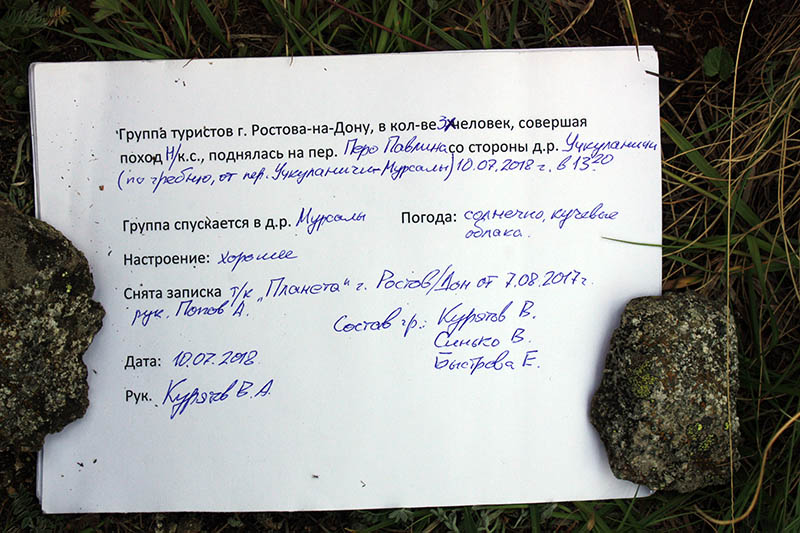 Группа туристов г. Ростова-на-Дону, в кол-ве 3х человек, совершая
поход Н/к.с., поднялась на пер. Перо Павлина со стороны д.р. Учкуланичи
(по гребню, от пер. Учкуланичи-Мурсалы) 10.07.2018 г. в 13:20
Группа спускается в д.р. Мурсалы Погода: солнечно, кучевые
облака.
Настроение: хорошее
Снята записка т/к „Планета“ г. Ростов/Дон от 7.08.2017г.
рук. Попов А.
Состав гр.: Курятов В.
Синько В.
Быстрова Е.
Дата: 10.07.2018
Рук. Курятов В.А.